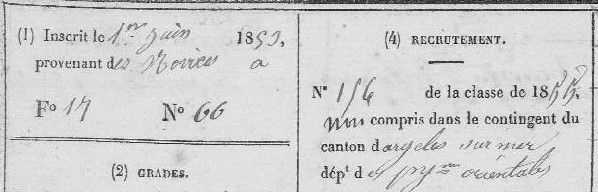 (1) Inscrit le 1er Juin 1853,
provenant des Novices a
Fo 17 No 66
(2) GRADES.
(4) RECRUTEMENT.
No 156 de la classe de 1855.
non compris dans le contingent du
canton d'argeles sur mer
dépt des pyrées orientales